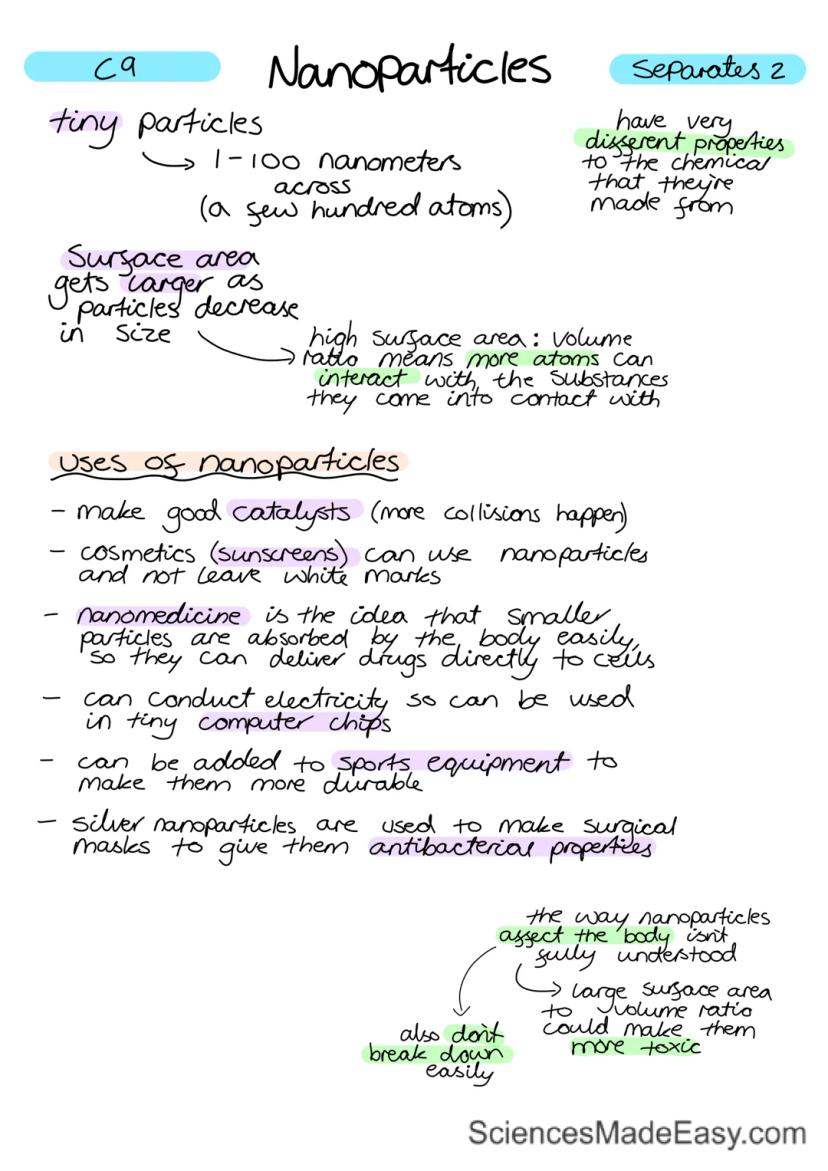 C9
Nanoparticles
Separates 2
tiny particles
1-100 nanometers
across
(a few hundred atoms)
have very
different properties
to the chemical
that they're
made from
Surface area
gets larger as
particles decrease
in size
high surface area: volume
ratio means more atoms can
interact with the substances
they come into contact with
uses of nanoparticles
- make good catalysts (more collisions happen)
- cosmetics (sunscreens) can use nanoparticles
and not leave white marks
- nanomedicine is the idea that smaller
particles are absorbed by the body easily,
so they can deliver drugs directly to cells
- can conduct electricity so can be used
in tiny computer chips
- can be added to sports equipment to
make them more durable
- silver nanoparticles are used to make surgical
masks to give them antibacterial properties
the way nanoparticles
affect the body isn't
fully understood
large surface area
to volume ratio
could make them
more toxic
also don't
break down
easily
SciencesMadeEasy.com